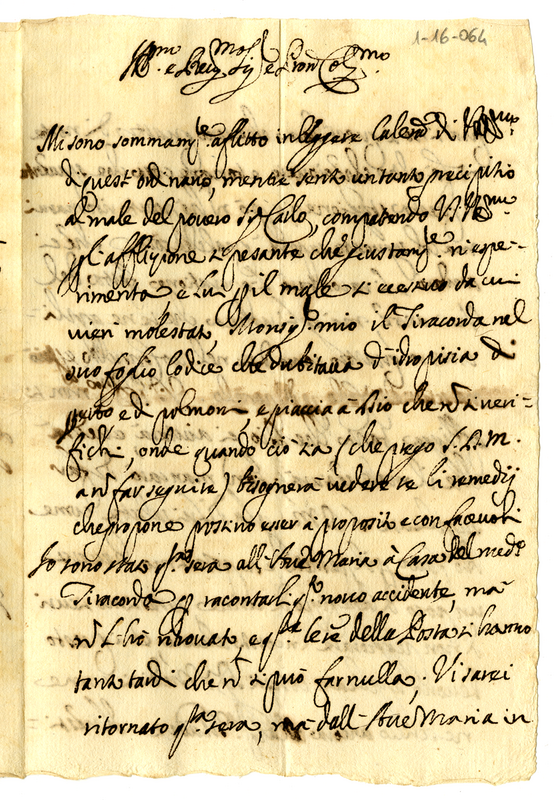 1-16-064
Ill.mo e Rev.mo Sig.r e Pron Col.mo
Mi sono sommam.te aflitto in leggere la lera di
di quest ordinario, mentre sento un tanto precipitio
al male del povero Sig. Carlo, compatendo V.S. Ill.ma
p l'afflizione si pesante che giustam.te ne espe-
rimenta e Lui p il male si eccessivo da cui
vien molestato, Monsig.r mio il Tiracorda nel
suo foglio lo dice che dubitava d'idropisia di
petto, e di polmoni, e piaccia à Dio che nō si veri-
fichi, onde quando ciò sia (che prego S.D.M.
à nō far seguire) bisognerà vedere se li remedij
che propone possino esser à proposito e con
Io sono stato q.ta sera all'Ave Maria à Casa del med.o
Tiracorda p racontarli q.to novo accidente, mà
nō l'hò ritrovato, e q.ste lere della Posta si hanno
tanto tardi che nō si può far nulla. Vi sarei
ritornato q.ta sera, mà dall'Ave Maria in